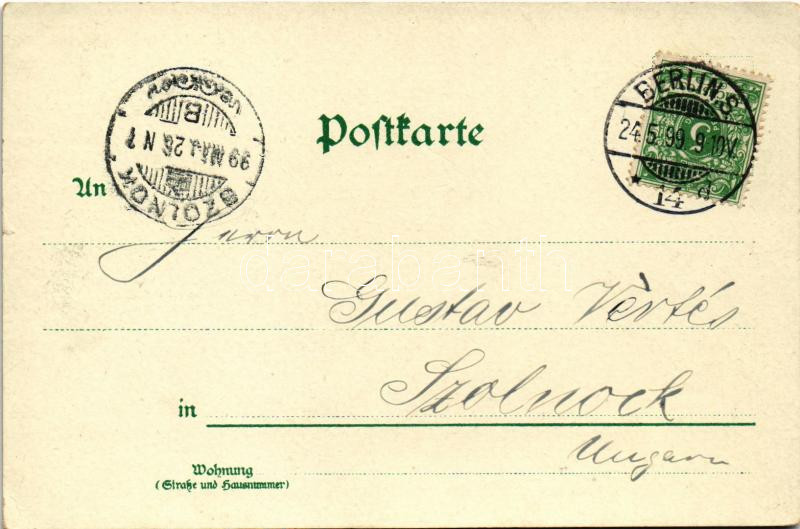 Postkarte
BERLIN.S.
24.5.99.9-10V.
* 14 a
SZOLNOK
99 MÁJ. 26 N 1
B
An
Herrn
Gustav Vèrtés
in Szolnock
Ungarn
Wohnung
(Straße und Hausnummer)
darabanth